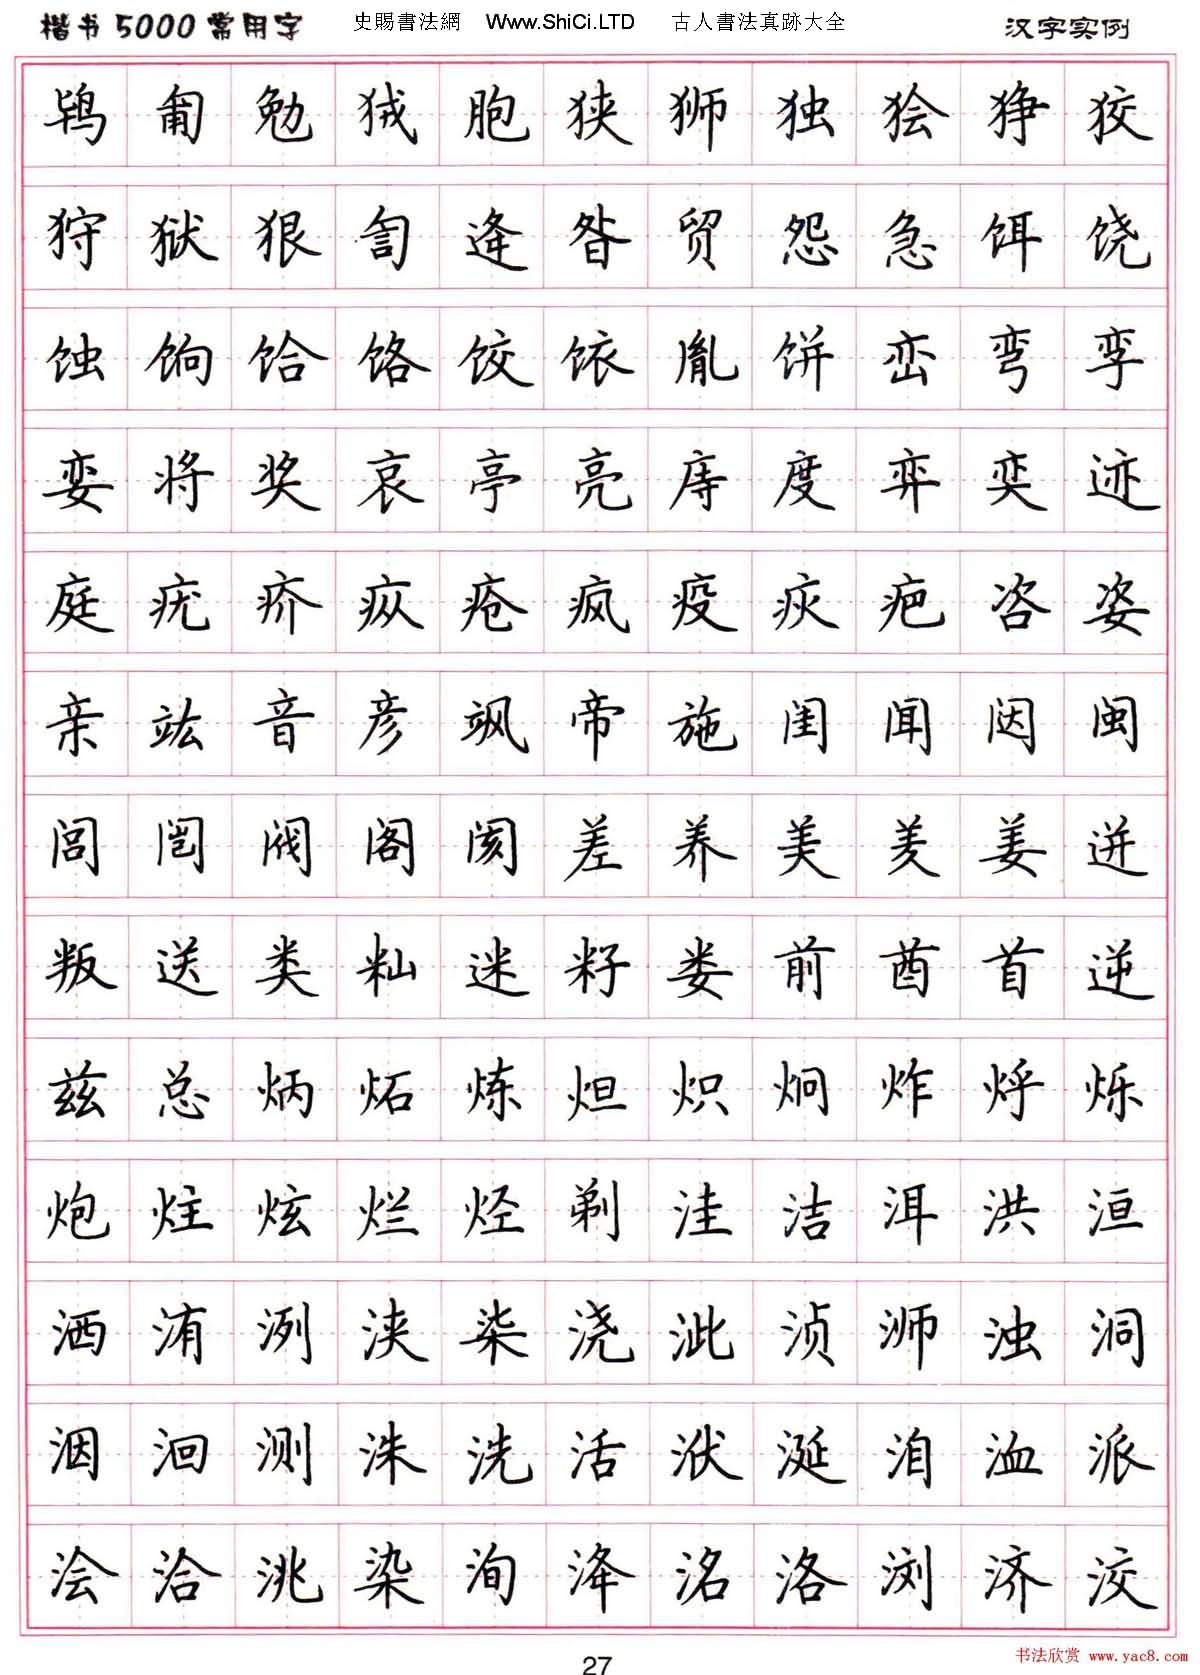 楷书5000常用字 史賜書法網 Www.ShiCi.LTD 古人書法真跡大全 汉字实例
鸨 匍 勉 狨 胞 狭 狮 独 狯 狰 狡
狩 狱 狠 訇 逄 昝 贸 怨 急 饵 饶
蚀 饷 饸 饹 饺 饻 胤 饼 峦 弯 孪
娈 将 奖 哀 亭 亮 庤 度 弈 奕 迹
庭 疣 疥 疭 疮 疯 疫 疢 疤 咨 姿
亲 竑 音 彦 飒 帝 施 闺 闻 闼 闽
闾 闿 阀 阁 阂 差 养 美 羑 姜 迸
叛 送 类 籼 迷 籽 娄 前 酋 首 逆
兹 总 炳 炻 炼 炟 炽 炯 炸 烀 烁
炮 炷 炫 烂 烃 剃 洼 洁 洱 洪 洹
洒 洧 洌 浃 柒 浇 泚 浈 浉 浊 洞
洇 洄 测 洙 洗 活 洑 涎 洎 洫 派
浍 洽 洮 染 洵 洚 洺 洛 浏 济 洨
27
书法欣赏 www.yac8.com